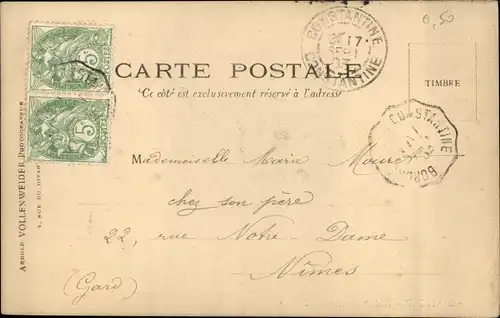 0,50
CONSTANTINE
17
SEPT
03
CONSTANTINE
5
5
CARTE POSTALE
Ce côté est exclusivement réservé à l'adresse
TIMBRE
CONSTANTINE
Mademoiselle Maria
chez son père
22, rue Notre-Dame
Nîmes
(Gard)
ARNOLD VOLLENWEIDER, PHOTOGRAPHE
4, RUE DU DIVAN